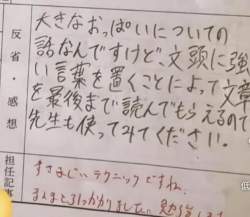 反省・感想
大きなおっぱいについての
話なんですけど、文頭に強
い言葉を置くことによって文章
を最後まで読んでもらえるので
先生も使ってみてください。
担任記事
すさまじいテクニックですね。
まんまとひっかかりました。勉強